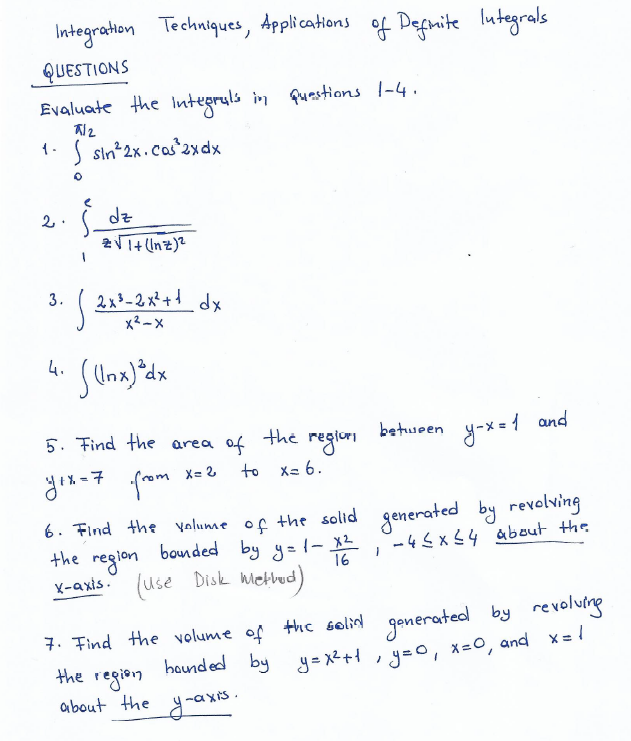 Integration Techniques, Applications of Definite Integrals
QUESTIONS
Evaluate the integrals in Questions 1-4.
1. ∫₀^(π/2) sin² 2x . cos³ 2x dx
2. ∫₁^e dz / (z√(1+(ln z)²))
3. ∫ (2x³-2x²+1)/(x²-x) dx
4. ∫ (lnx)² dx
5. Find the area of the region between y-x=1 and
y+x=7 from x=2 to x=6.
6. Find the volume of the solid generated by revolving
the region bounded by y=1-x²/16 , -4≤x≤4 about the
x-axis. (Use Disk Method)
7. Find the volume of the solid generated by revolving
the region bounded by y=x²+1 , y=0, x=0, and x=1
about the y-axis.